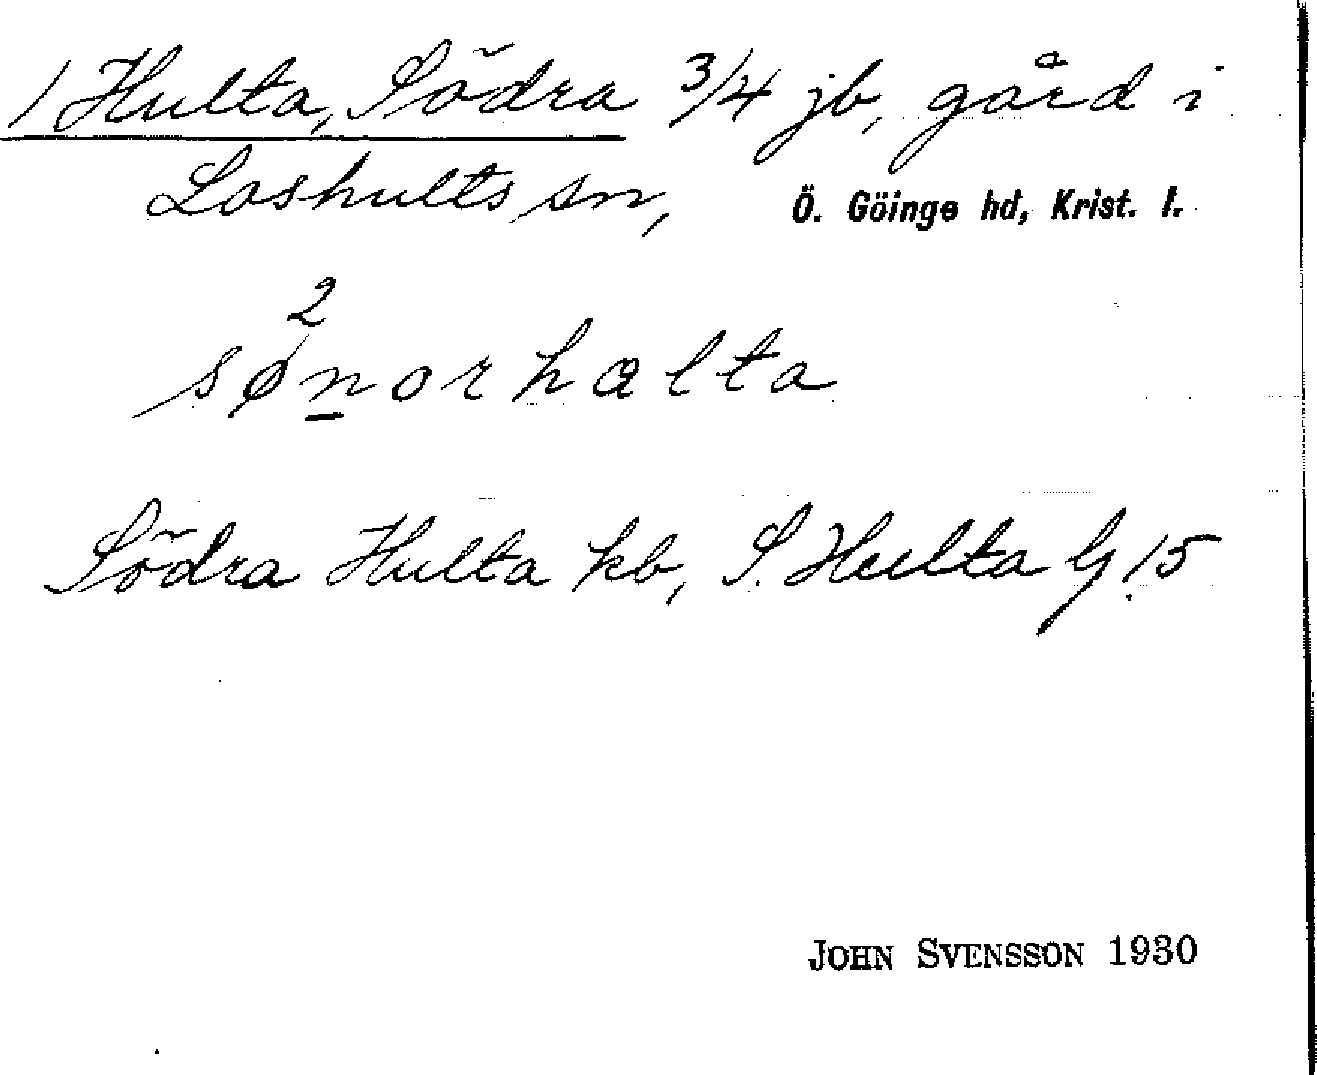 1 Hulta, Södra 3/4 jb, gård i
Loshults sn, Ö. Göinge hd, Krist. l.
2
sønorhalta
Södra Hulta kb, S. Hulta G 15
JOHN SVENSSON 1930